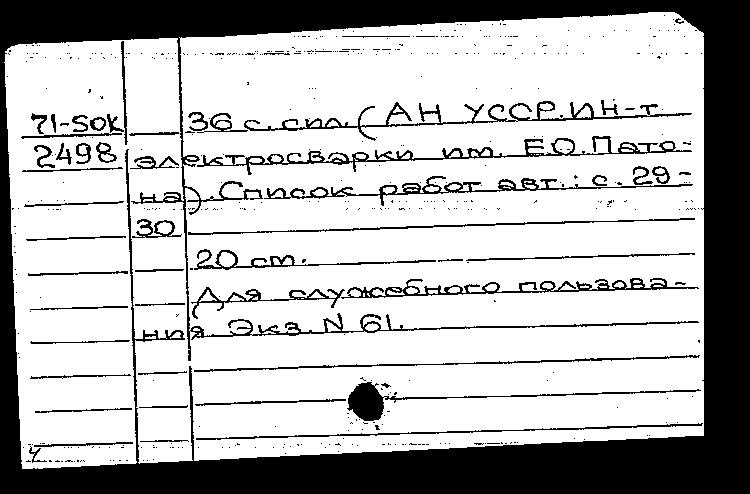 71-5OK 36 с. с ил. (АН УССР. Ин-т
2498 электросварки им. Е.О. Пато-
на). Список работ авт.: с. 29-
30
20 см.
Для служебного пользова-
ния Экз. N 61.